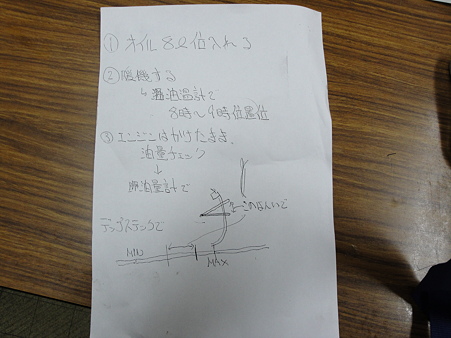 ① オイル 8ℓ位入れる
② 暖機する
↳ 油温計で
8時〜9時位置位
③ エンジンはかけたまま
油量チェック
↓
油量計で
このはんいで
デップステックで
MIN
MAX